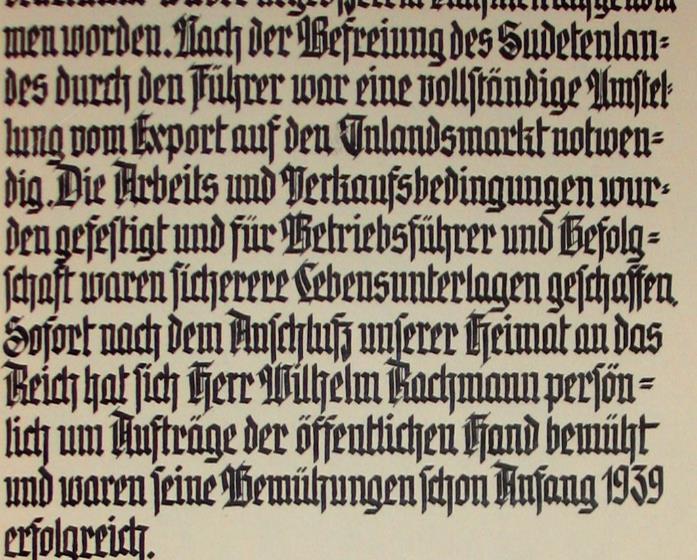 men worden. Nach der Befreiung des Sudetenlan=
des durch den Führer war eine vollständige Umstel=
lung vom Export auf den Inlandsmarkt notwen=
dig. Die Arbeits und Verkaufsbedingungen wur=
den gefestigt und für Betriebsführer und Gefolg=
schaft waren sicherere Lebensunterlagen geschaffen.
Sofort nach dem Anschluß unserer Heimat an das
Reich hat sich Herr Wilhelm Rachmann persön=
lich um Aufträge der öffentlichen Hand bemüht
und waren seine Bemühungen schon Anfang 1939
erfolgreich.